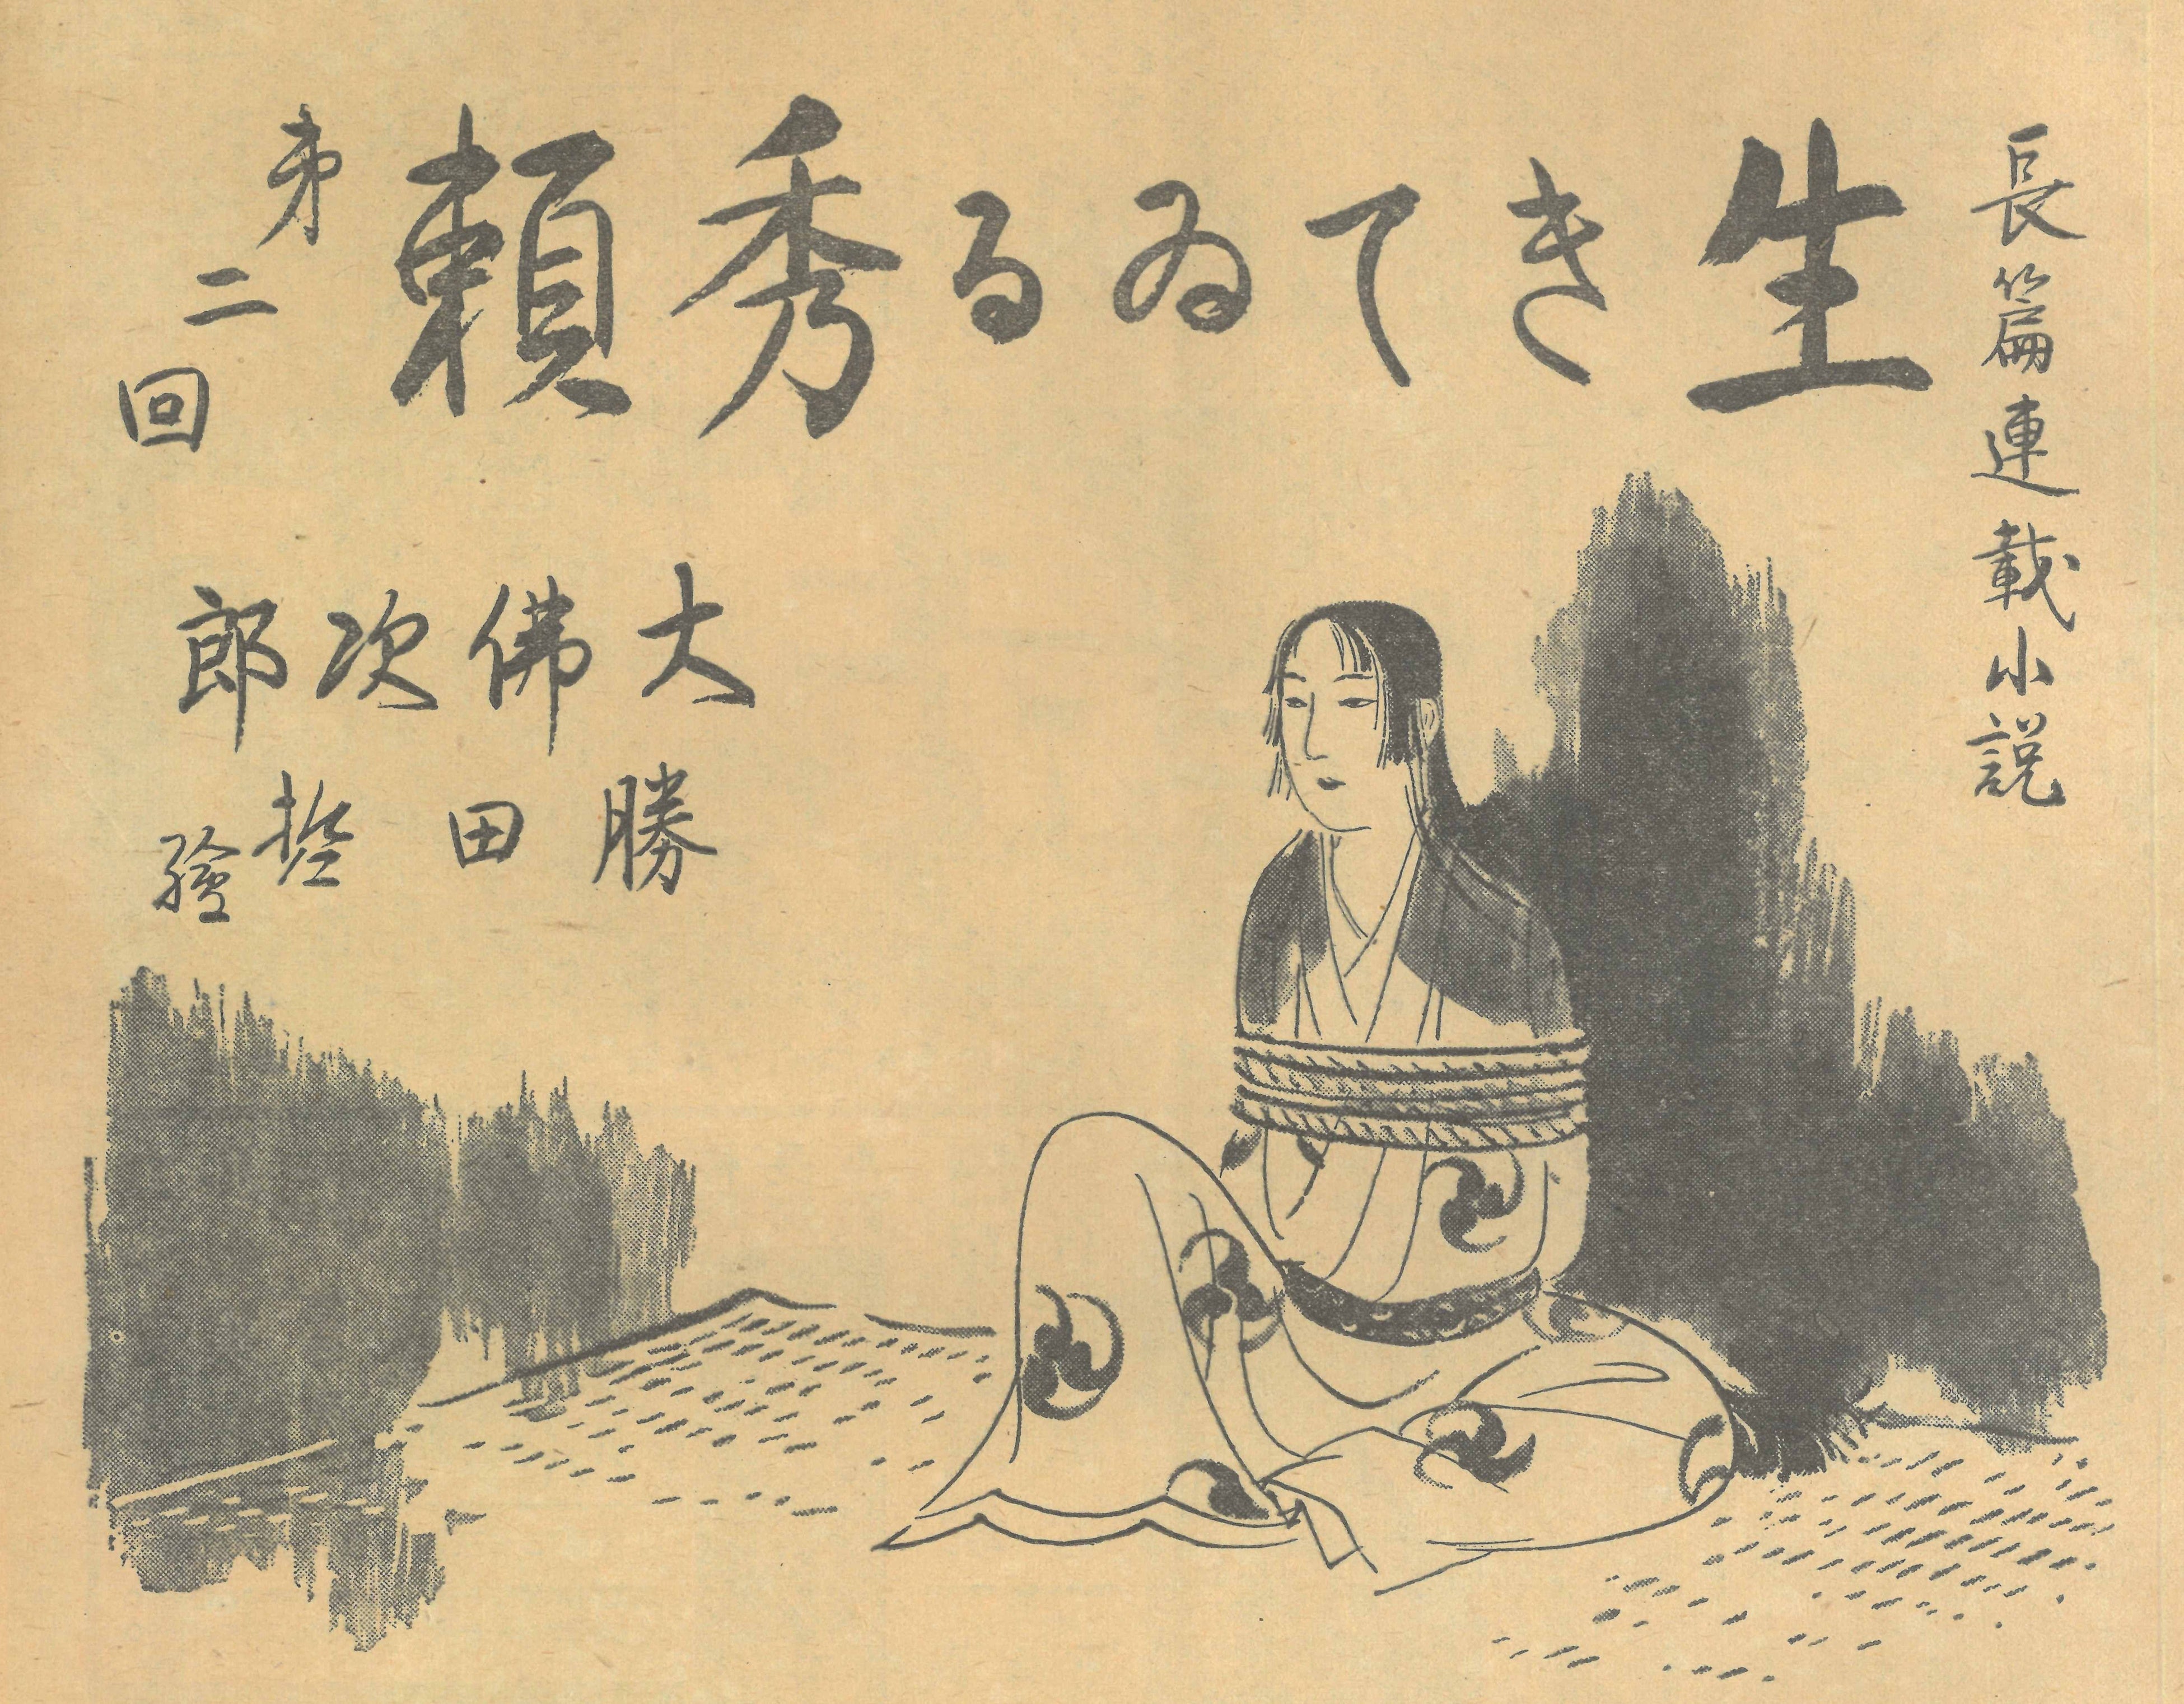 長篇連載小説
生きてゐる秀頼
㐧二回
大佛次郎
勝田哲
繪